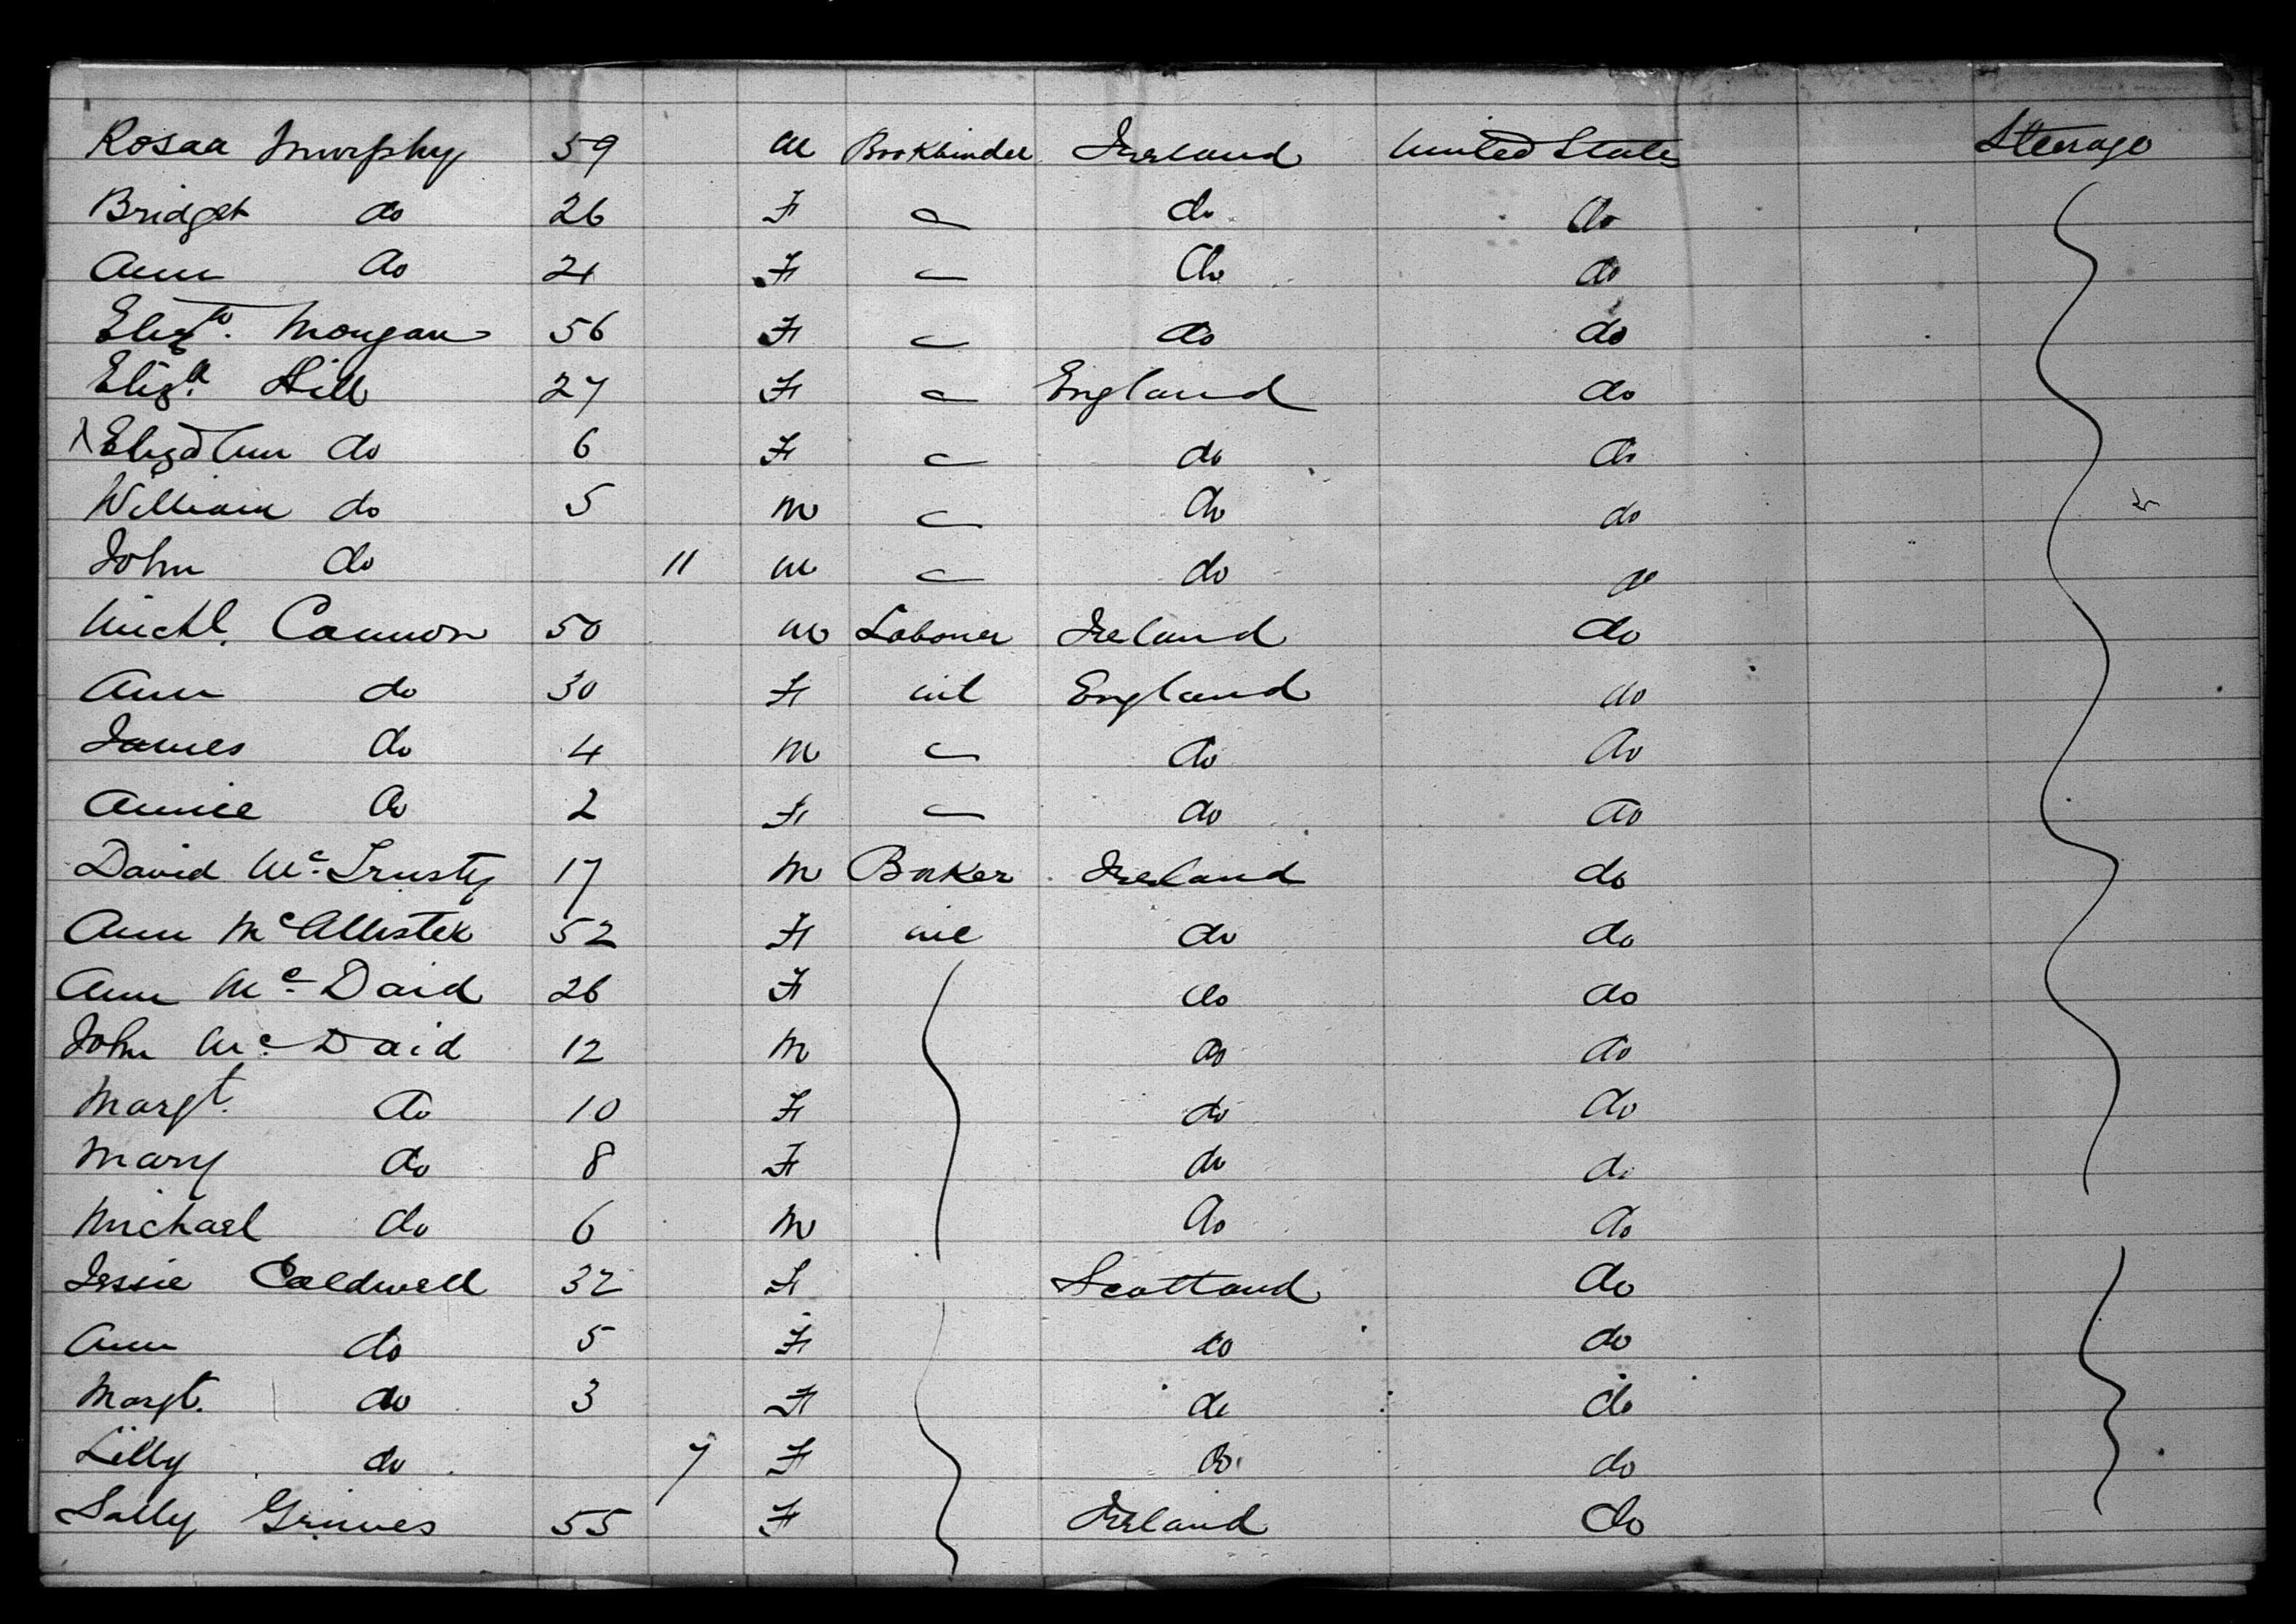 Rosaa Murphy 59 M Bookbinder Ireland United States Steerage
Bridget do 26 F do do
Ann do 24 F do do
Eliz.th Morgan 56 F do do
Eliz.th Hill 27 F England do
Eliza Ann do 6 F do do
William do 5 M do do
John do 11 M do do
Michl. Cannon 50 M Laborer Ireland do
Ann do 30 F nil England do
James do 4 M do do
Annie do 2 F do do
David Mc Trusty 17 M Baker Ireland do
Ann McAllister 52 F nil do do
Ann Mc Daid 26 F do do
John Mc Daid 12 M do do
Margt. do 10 F do do
Mary do 8 F do do
Michael do 6 M do do
Jessie Caldwell 32 F Scotland do
Ann do 5 F do do
Margt. do 3 F do do
Lilly do 7 F do do
Sally Grimes 55 F Ireland do